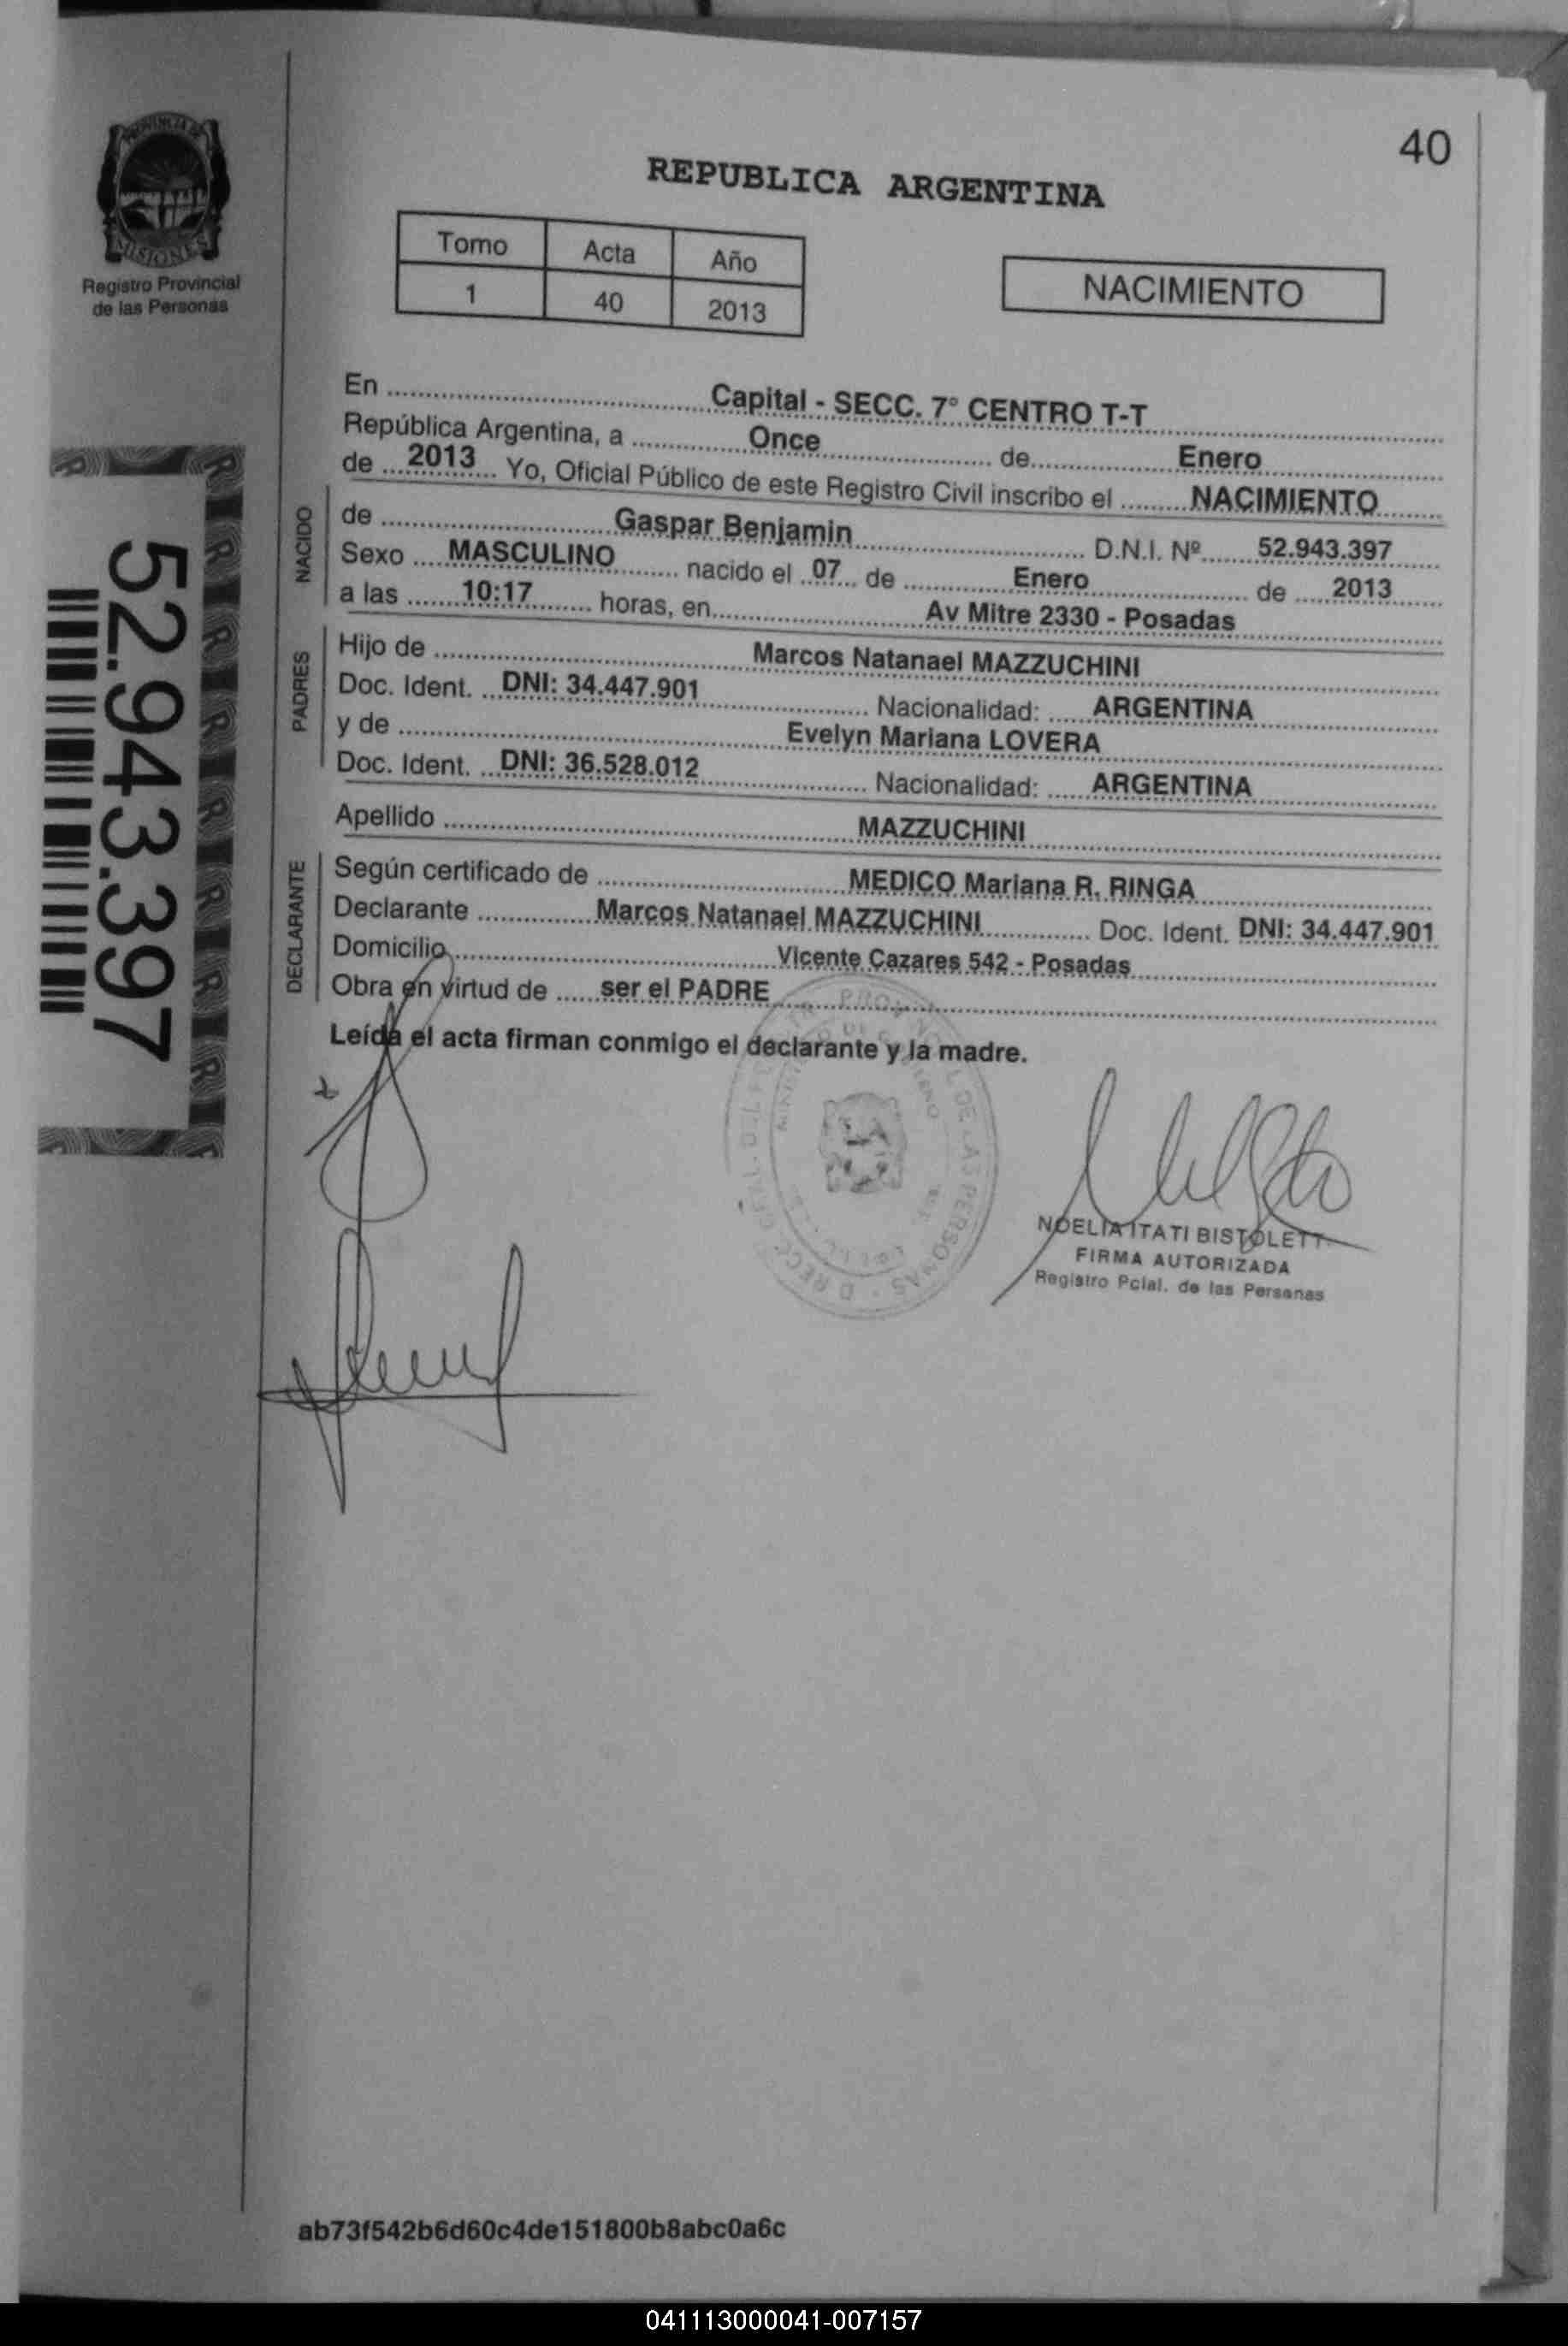 40
PROVINCIA DE
MISIONES
Registro Provincial
de las Personas
REPUBLICA ARGENTINA
Tomo Acta Año
1 40 2013
NACIMIENTO
En Capital - SECC. 7° CENTRO T-T
República Argentina, a Once de Enero
de 2013 Yo, Oficial Público de este Registro Civil inscribo el NACIMIENTO
NACIDO
de Gaspar Benjamin D.N.I. Nº 52.943.397
Sexo MASCULINO nacido el 07 de Enero de 2013
a las 10:17 horas, en Av Mitre 2330 - Posadas
PADRES
Hijo de Marcos Natanael MAZZUCHINI
Doc. Ident. DNI: 34.447.901 Nacionalidad: ARGENTINA
y de Evelyn Mariana LOVERA
Doc. Ident. DNI: 36.528.012 Nacionalidad: ARGENTINA
Apellido MAZZUCHINI
DECLARANTE
Según certificado de MEDICO Mariana R. RINGA
Declarante Marcos Natanael MAZZUCHINI Doc. Ident. DNI: 34.447.901
Domicilio Vicente Cazares 542 - Posadas
Obra en virtud de ser el PADRE
Leída el acta firman conmigo el declarante y la madre.
52.943.397
DE LAS PERSONAS
NOELIA ITATI BISTOLETT
FIRMA AUTORIZADA
Registro Pcial. de las Personas
ab73f542b6d60c4de151800b8abc0a6c
041113000041-007157